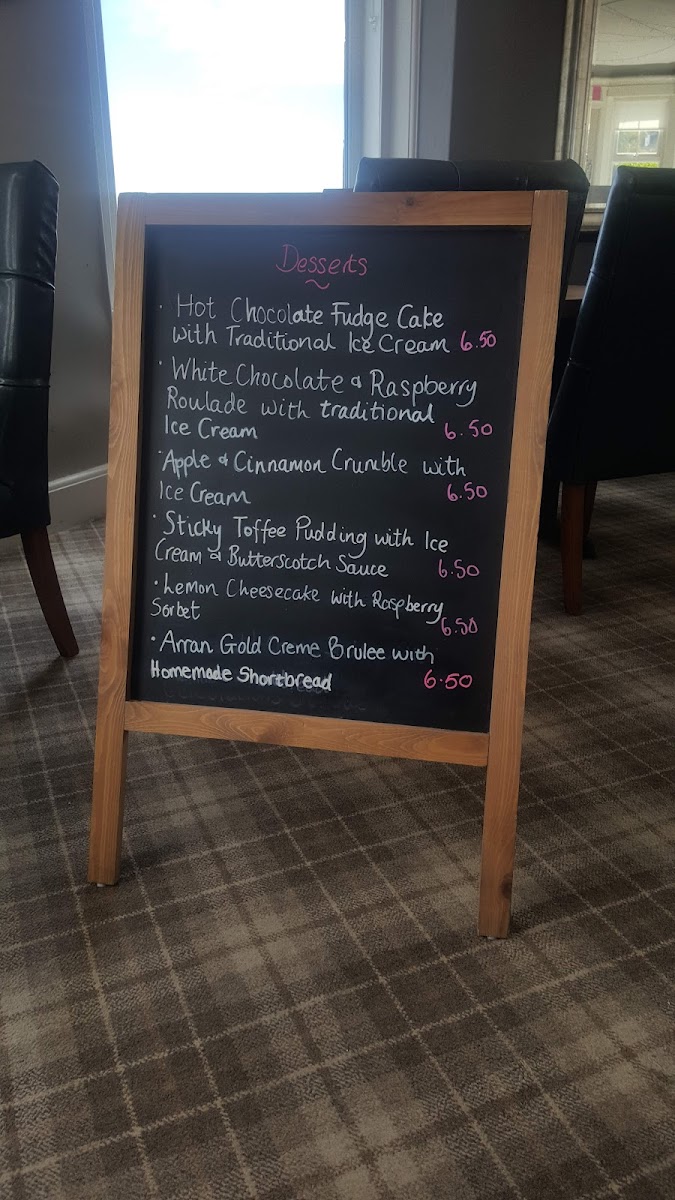 Desserts
· Hot Chocolate Fudge Cake
with Traditional Ice Cream 6.50
· White Chocolate & Raspberry
Roulade with traditional
Ice Cream 6.50
· Apple & Cinnamon Crumble with
Ice Cream 6.50
· Sticky Toffee Pudding with Ice
Cream & Butterscotch Sauce 6.50
· Lemon Cheesecake with Raspberry
Sorbet 6.50
· Arran Gold Creme Brulee with
Homemade Shortbread 6.50